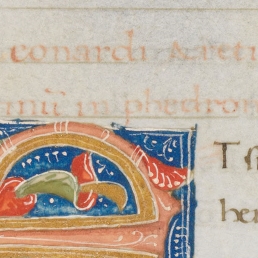 eonardi Areti
miū in phedron
T
her